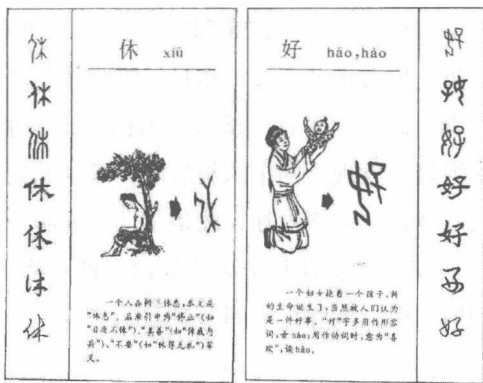 休
休
休
休 xiū
一个人在树下休息，本义是
"休息"。后来引申为"停止"（如
"日夜不休"）、"美善"（如"休戚与
共"）、"不要"（如"休得无礼"）等
义。
好 hǎo,hào
一个妇女抱着一个孩子，新
的生命诞生了，当然被人们认为
是一件好事。"好"字多用作形容
词，音hǎo；用作动词时，意为"喜
欢"，读hào。
好
好
好